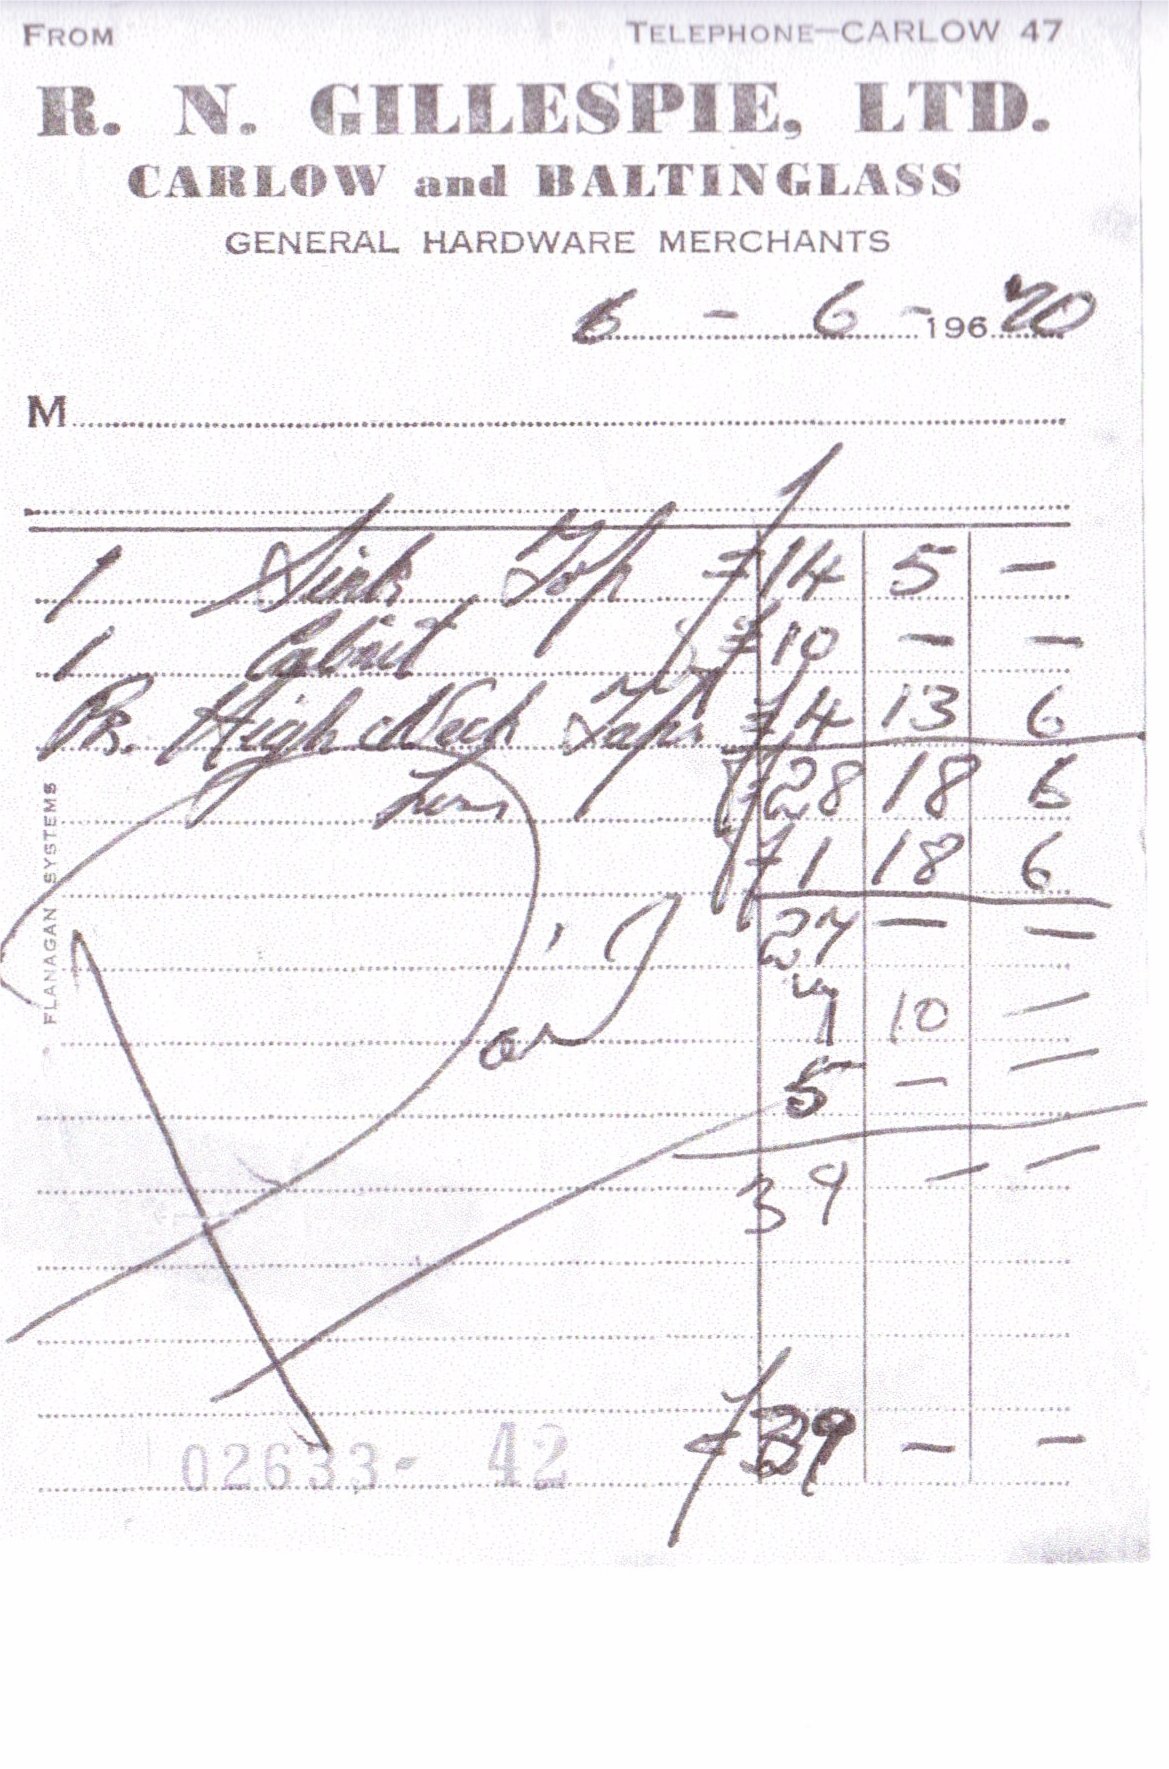 FROM TELEPHONE—CARLOW 47
R. N. GILLESPIE, LTD.
CARLOW and BALTINGLASS
GENERAL HARDWARE MERCHANTS
6 - 6 - 196 70
M
1 Sink Top £14 5 —
1 Cabinet £10 — —
Pr. High Neck Taps £4 13 6
Less £28 18 6
£1 18 6
27 — —
7 10 —
5 — —
39 — —
£39 — —
02633- 42
FLANAGAN SYSTEMS